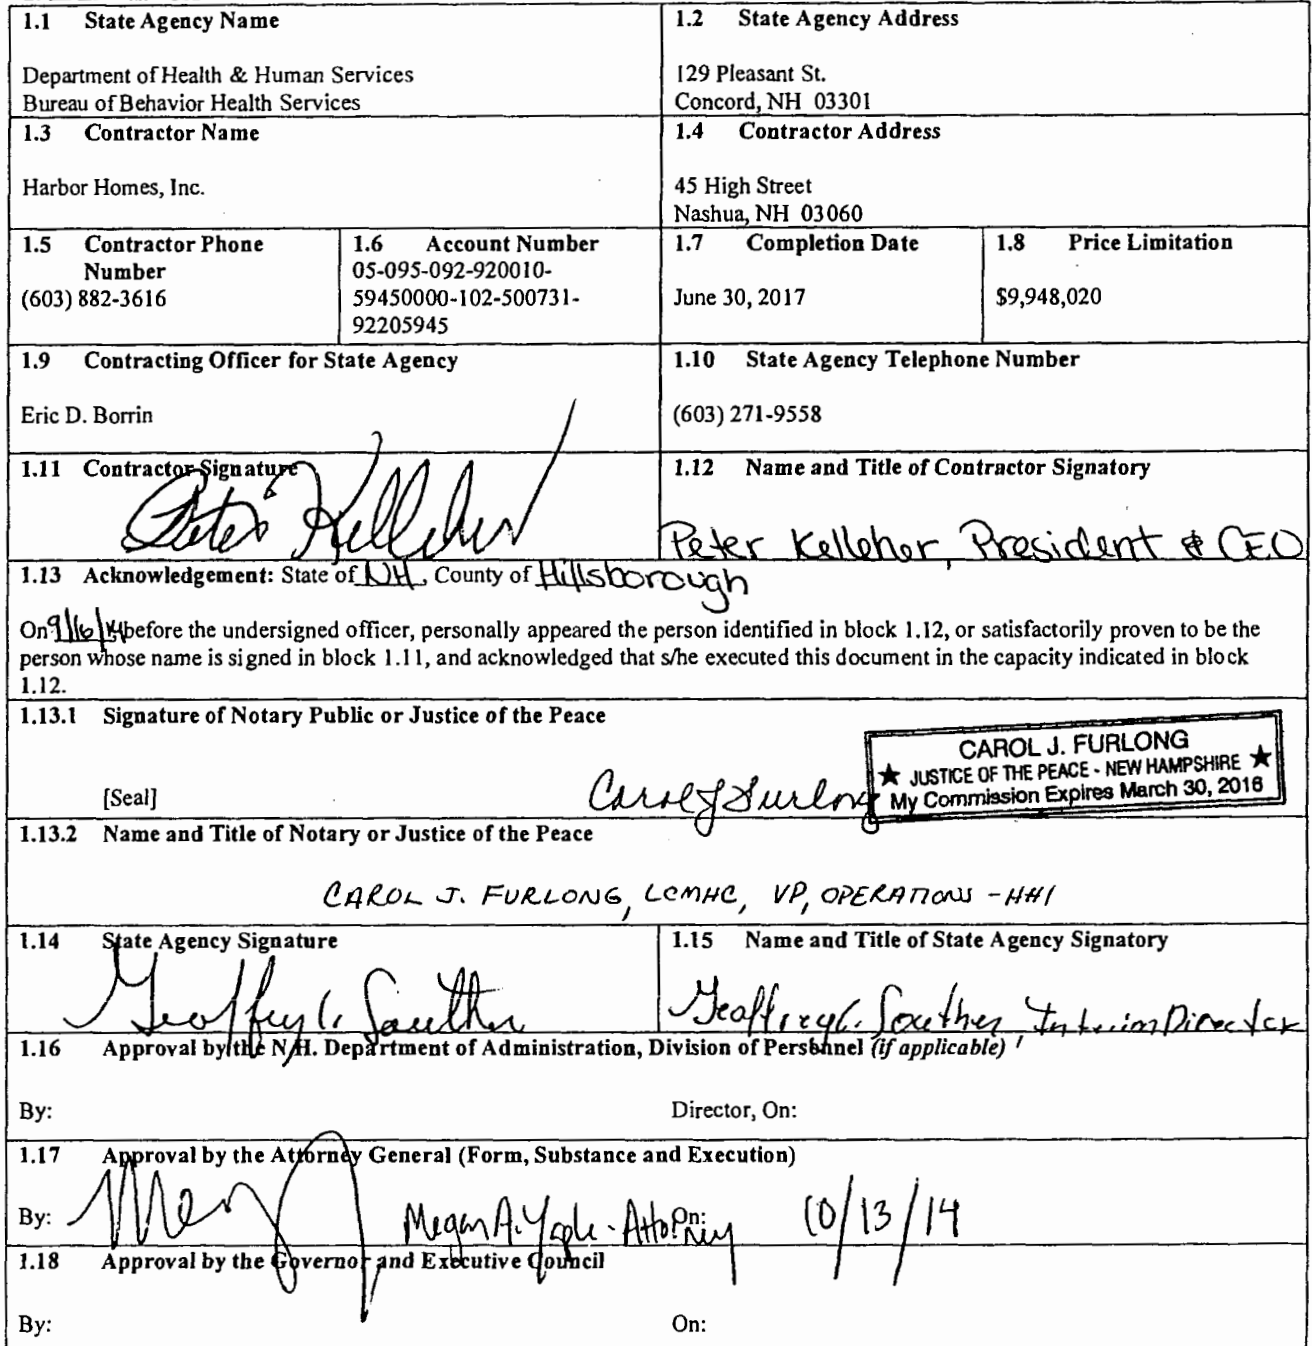 1.1 State Agency Name
Department of Health & Human Services
Bureau of Behavior Health Services
1.2 State Agency Address
129 Pleasant St.
Concord, NH 03301
1.3 Contractor Name
Harbor Homes, Inc.
1.4 Contractor Address
45 High Street
Nashua, NH 03060
1.5 Contractor Phone
Number
(603) 882-3616
1.6 Account Number
05-095-092-920010-
59450000-102-500731-
92205945
1.7 Completion Date
June 30, 2017
1.8 Price Limitation
$9,948,020
1.9 Contracting Officer for State Agency
Eric D. Borrin
1.10 State Agency Telephone Number
(603) 271-9558
1.11 Contractor Signature
Peter Kelleher
1.12 Name and Title of Contractor Signatory
Peter Kelleher, President & CEO
1.13 Acknowledgement: State of NH, County of Hillsborough
On 9/16/14 before the undersigned officer, personally appeared the person identified in block 1.12, or satisfactorily proven to be the
person whose name is signed in block 1.11, and acknowledged that s/he executed this document in the capacity indicated in block
1.12.
1.13.1 Signature of Notary Public or Justice of the Peace
[Seal]
Carol J Furlong
CAROL J. FURLONG
★ JUSTICE OF THE PEACE - NEW HAMPSHIRE ★
My Commission Expires March 30, 2016
1.13.2 Name and Title of Notary or Justice of the Peace
CAROL J. FURLONG, LCMHC, VP, OPERATIONS - HHI
1.14 State Agency Signature
1.15 Name and Title of State Agency Signatory
Souther Interim Director
1.16 Approval by the N.H. Department of Administration, Division of Personnel (if applicable)
By:
Director, On:
1.17 Approval by the Attorney General (Form, Substance and Execution)
By: Megan A. - Attorney On: 10/13/14
1.18 Approval by the Governor and Executive Council
By:
On: